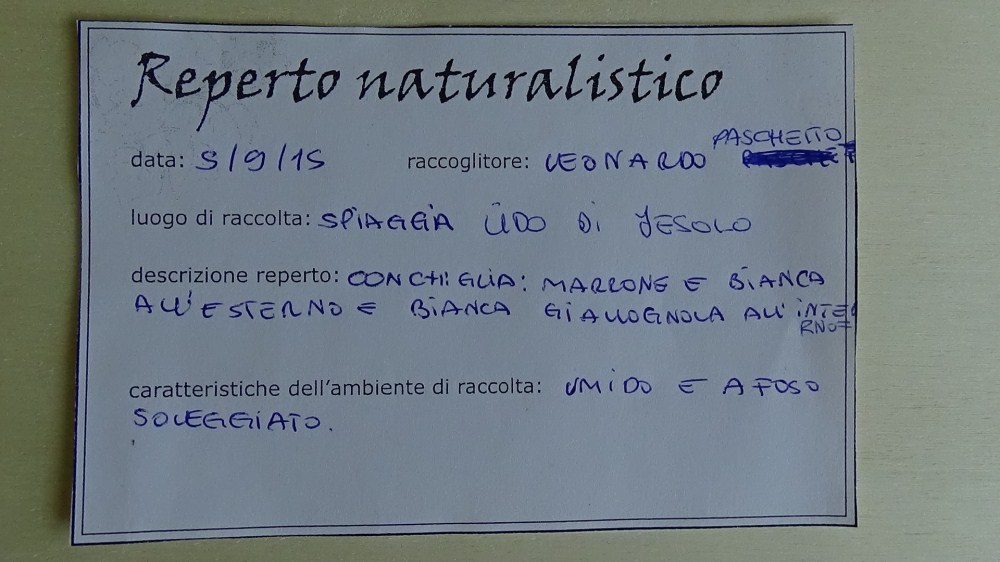 Reperto naturalistico
PASCHETTO
data: 5/9/15 raccoglitore: LEONARDO
luogo di raccolta: SPIAGGIA LIDO DI JESOLO
descrizione reperto: CONCHIGLIA: MARRONE E BIANCA
ALL'ESTERNO E BIANCA GIALLOGNOLA ALL'INTE
RNO
caratteristiche dell'ambiente di raccolta: UMIDO E AFOSO
SOLEGGIATO.